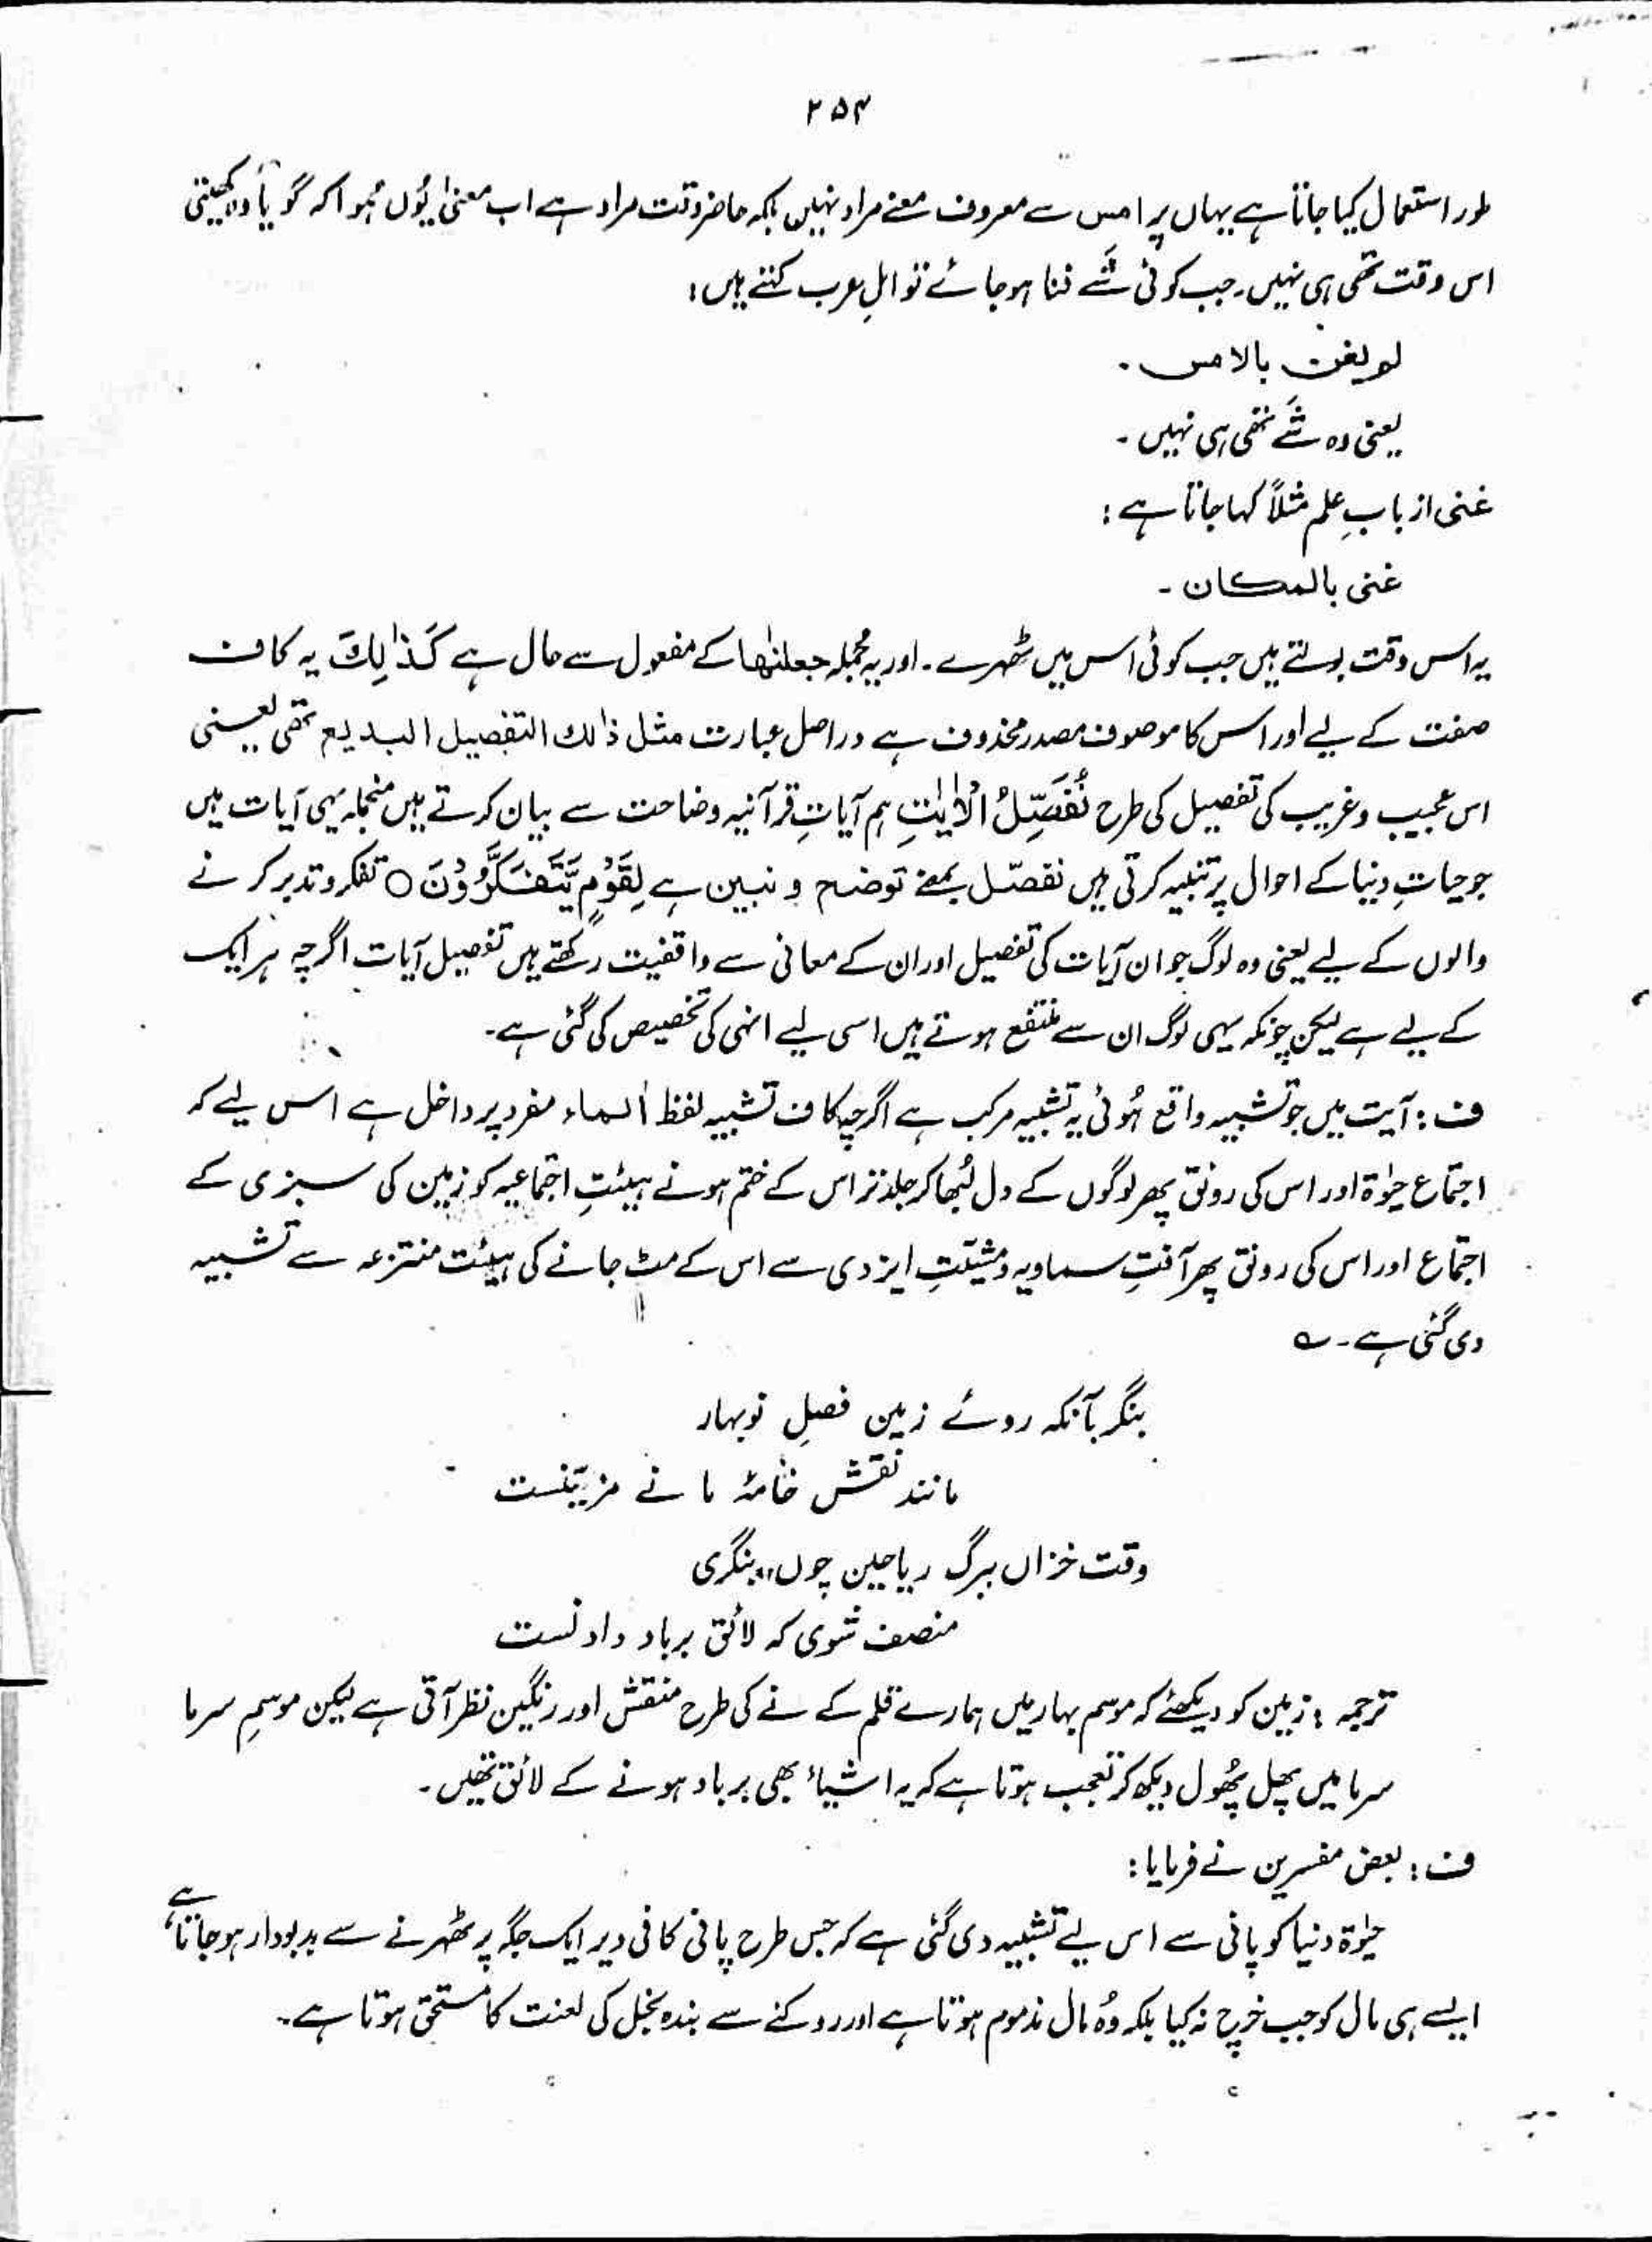 ۲۵۴
طور استعمال کیا جاتا ہے یہاں پر امس سے معروف معنے مراد نہیں بلکہ حاضر وقت مراد ہے اب معنیٰ یُوں ہُوا کہ گویا وہ کھیتی
اس وقت تھی ہی نہیں۔ جب کوئی شَے فنا ہو جائے تو اہلِ عرب کہتے ہیں:
لم یغن بالامس ۔
یعنی وہ شَے تھی ہی نہیں ۔
غنی از بابِ علم مثلاً کہا جاتا ہے :
غنی بالمکان ۔
یہ اس وقت بولتے ہیں جب کوئی اس میں ٹھہرے ۔ اور یہ جملہ جعلنٰھا کے مفعول سے حال ہے کَذٰلِكَ یہ کاف
صفت کے لیے اور اس کا موصوف مصدر محذوف ہے دراصل عبارت مثل ذٰلک التفصیل البدیع تھی یعنی
اس عجیب و غریب کی تفصیل کی طرح نُفَصِّلُ الْاٰیٰتِ ہم آیاتِ قرآنیہ وضاحت سے بیان کرتے ہیں منجملہ یہی آیات ہیں
جو حیاتِ دنیا کے احوال پر تنبیہ کرتی ہیں نفصّل بمعنے توضح و نبین ہے لِقَوْمٍ یَّتَفَکَّرُوْنَ ○ تفکر و تدبر کرنے
والوں کے لیے یعنی وہ لوگ جو ان آیات کی تفصیل اور ان کے معانی سے واقفیت رکھتے ہیں تفصیل آیات اگرچہ ہر ایک
کے لیے ہے لیکن چونکہ یہی لوگ ان سے منتفع ہوتے ہیں اسی لیے انہی کی تخصیص کی گئی ہے۔
ف : آیت میں جو تشبیہ واقع ہُوئی یہ تشبیہ مرکب ہے اگرچہ کاف تشبیہ لفظ الماء مفرد پر داخل ہے اس لیے کہ
اجتماع حیٰوۃ اور اس کی رونق پھر لوگوں کے دل لُبھا کر جلد تر اس کے ختم ہونے ہیئتِ اجتماعیہ کو زمین کی سبزی کے
اجتماع اور اس کی رونق پھر آفتِ سماویہ و مشیّتِ ایزدی سے اس کے مٹ جانے کی ہیئت منتزعہ سے تشبیہ
دی گئی ہے ۔ ؎
بنگر بآنکہ روئے زمین فصلِ نوبہار
مانند نقش خامۂ مانے مزینست
وقت خزاں ببرگ ریاحین چوں بنگری
منصف شوی کہ لائق برباد دادنست
ترجمہ : زمین کو دیکھئے کہ موسم بہار میں ہمارے قلم کے نے کی طرح منقش اور رنگین نظر آتی ہے لیکن موسمِ سرما
سرما میں پھل پُھول دیکھ کر تعجب ہوتا ہے کہ یہ اشیاء بھی برباد ہونے کے لائق تھیں ۔
ف : بعض مفسرین نے فرمایا :
حیٰوۃ دنیا کو پانی سے اس لیے تشبیہ دی گئی ہے کہ جس طرح پانی کافی دیر ایک جگہ پر ٹھہرنے سے بدبودار ہو جاتا ہے،
ایسے ہی مال کو جب خرچ نہ کیا بلکہ وُہ مال مذموم ہوتا ہے اور روکنے سے بندہ بخل کی لعنت کا مستحق ہوتا ہے۔